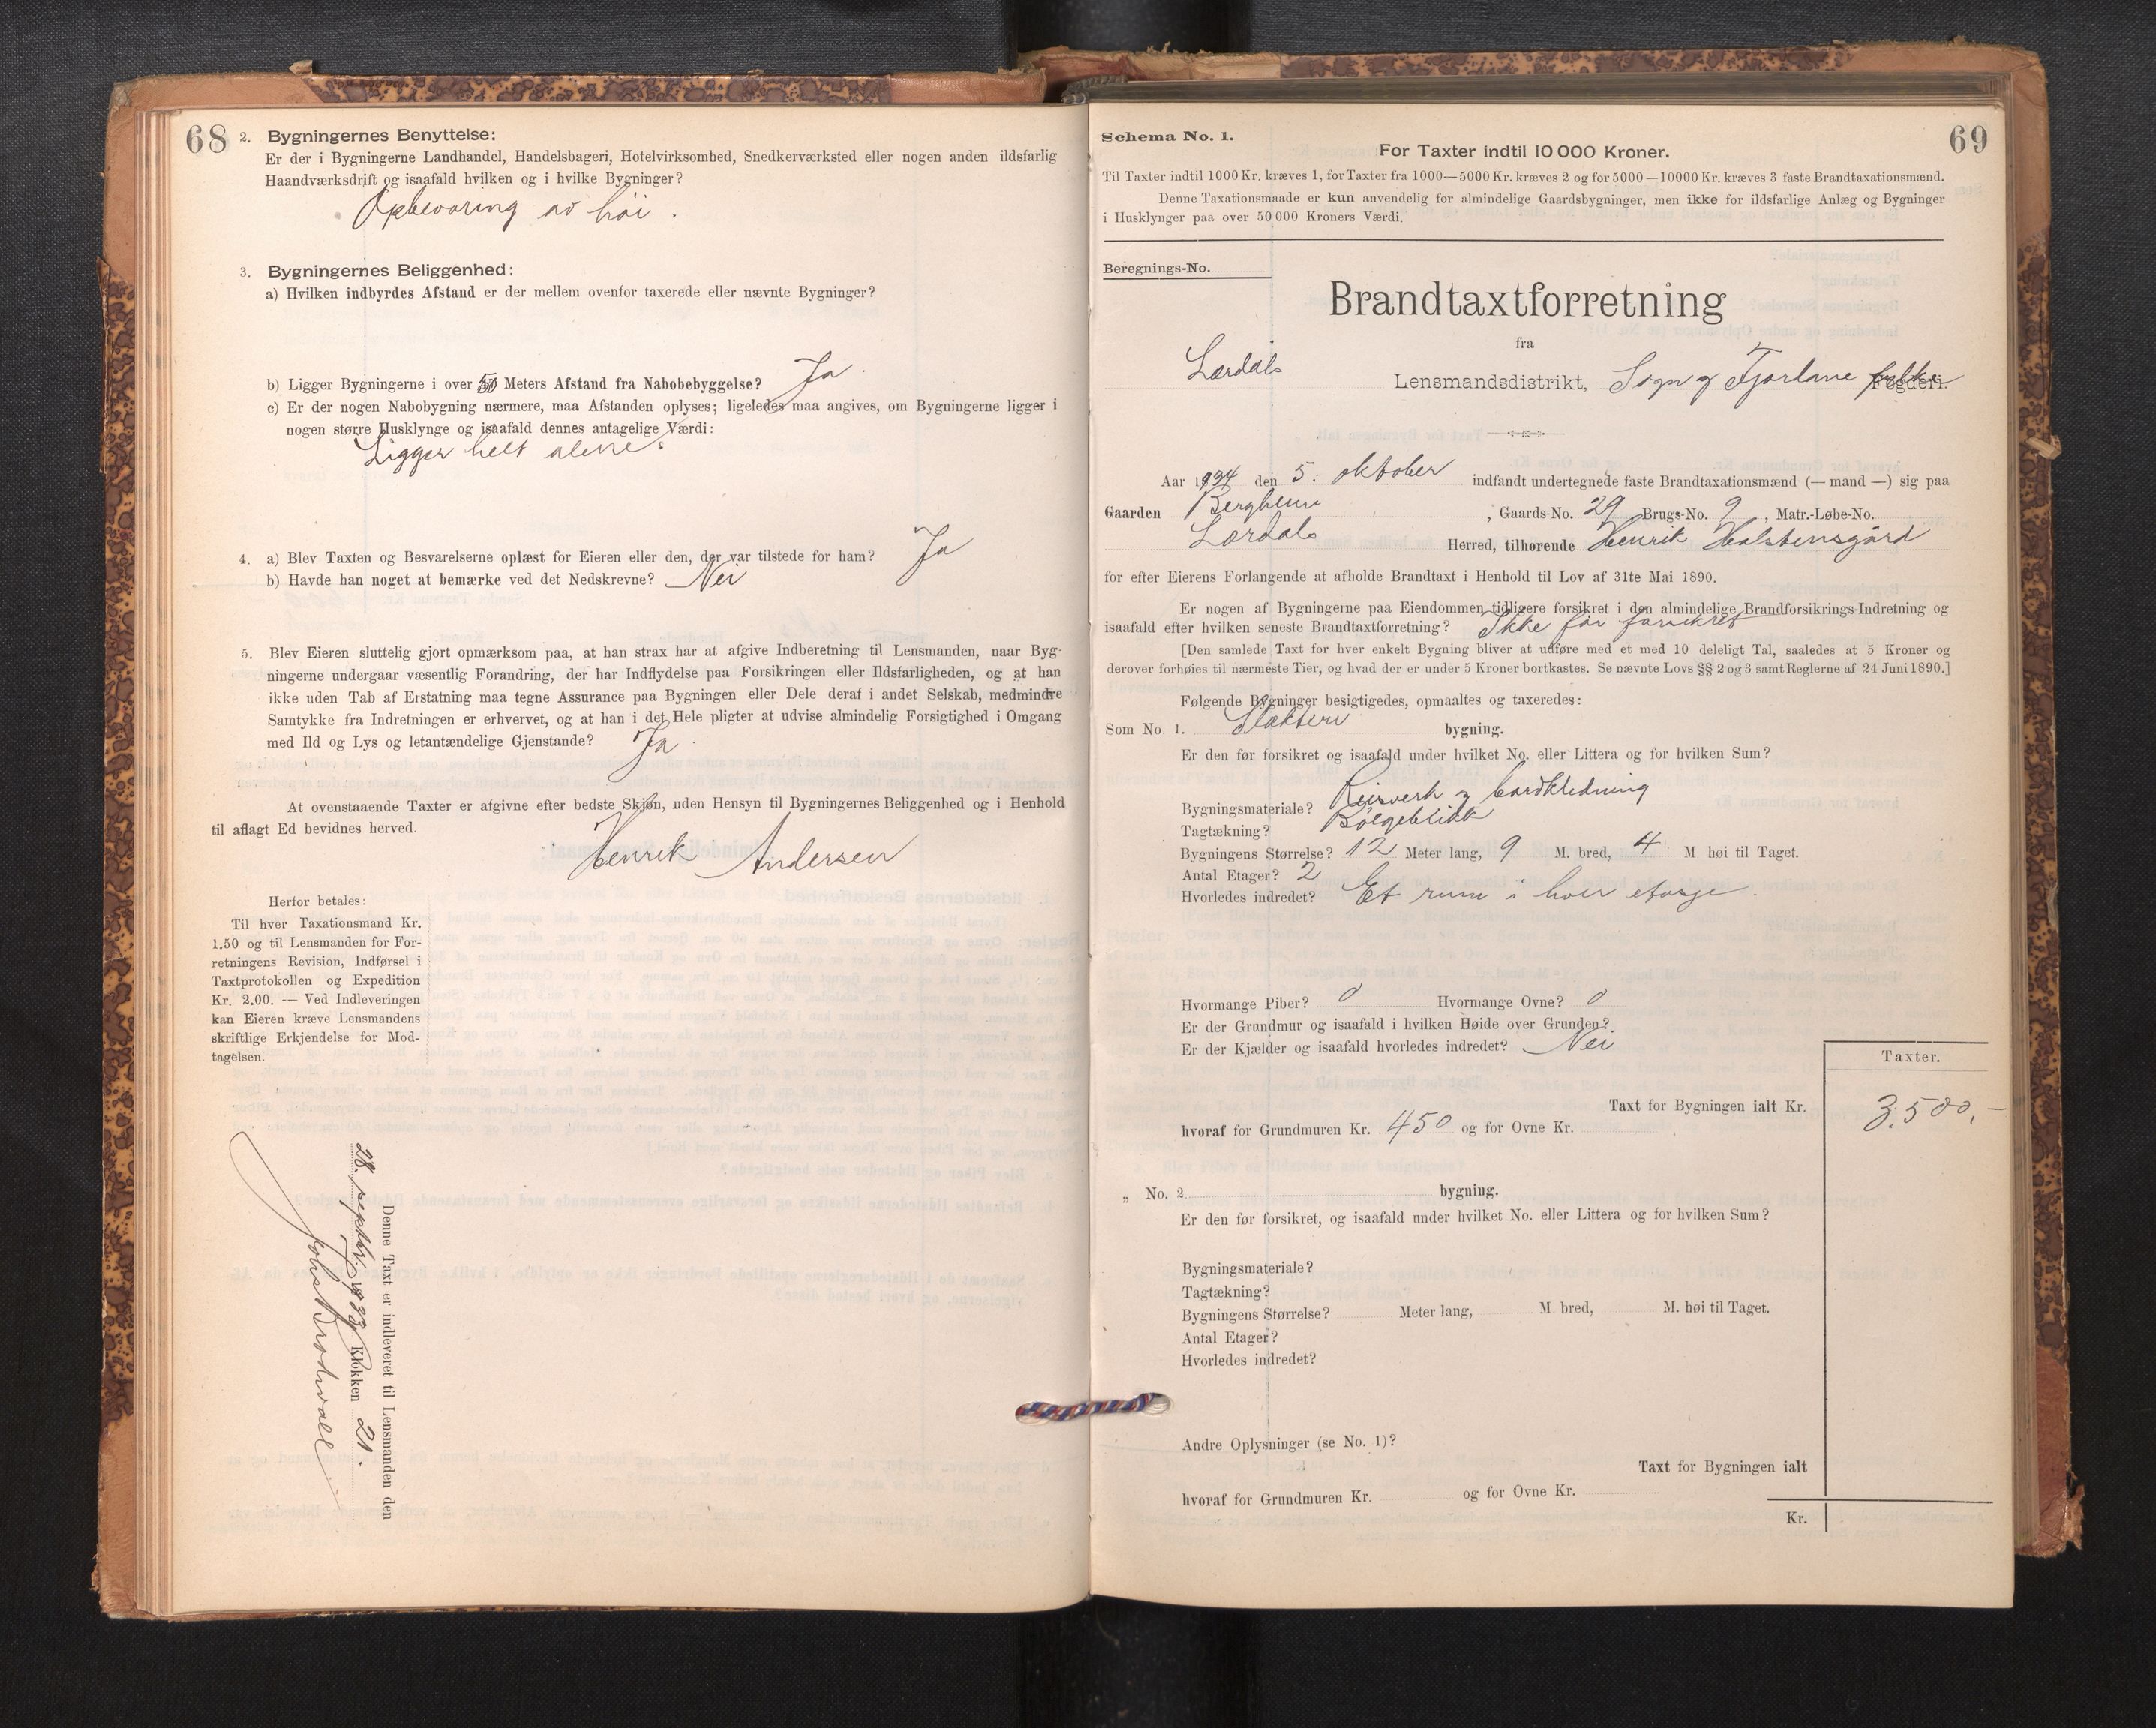 68
2. Bygningernes Benyttelse:
Er der i Bygningerne Landhandel, Handelsbageri, Hotelvirksomhed, Snedkerværksted eller nogen anden ildsfarlig
Haandværksdrift og isaafald hvilken og i hvilke Bygninger?
Opbevaring av høi.
3. Bygningernes Beliggenhed:
a) Hvilken indbyrdes Afstand er der mellem ovenfor taxerede eller nævnte Bygninger?
b) Ligger Bygningerne i over 50 Meters Afstand fra Nabobebyggelse? Ja.
c) Er der nogen Nabobygning nærmere, maa Afstanden oplyses; ligeledes maa angives, om Bygningerne ligger i
nogen større Husklynge og isaafald dennes antagelige Værdi:
Ligger helt alene.
4. a) Blev Taxten og Besvarelserne oplæst for Eieren eller den, der var tilstede for ham? Ja
b) Havde han noget at bemærke ved det Nedskrevne? Nei
5. Blev Eieren sluttelig gjort opmærksom paa, at han strax har at afgive Indberetning til Lensmanden, naar Byg-
ningerne undergaar væsentlig Forandring, der har Indflydelse paa Forsikringen eller Ildsfarligheden, og at han
ikke uden Tab af Erstatning maa tegne Assurance paa Bygningen eller Dele deraf i andet Selskab, medmindre
Samtykke fra Indretningen er erhvervet, og at han i det Hele pligter at udvise almindelig Forsigtighed i Omgang
med Ild og Lys og letantændelige Gjenstande? Ja.
At ovenstaaende Taxter er afgivne efter bedste Skjøn, uden Hensyn til Bygningernes Beliggenhed og i Henhold
til aflagt Ed bevidnes herved.
Henrik Andersen
Herfor betales:
Til hver Taxationsmand Kr.
1.50 og til Lensmanden for For-
retningens Revision, Indførsel i
Taxtprotokollen og Expedition
Kr. 2.00. — Ved Indleveringen
kan Eieren kræve Lensmandens
skriftlige Erkjendelse for Mod-
tagelsen.
Denne Taxt er indleveret til Lensmanden den
28. septbr. 1933 Klokken 21.
Johs Brodwall
69
Schema No. 1.
For Taxter indtil 10 000 Kroner.
Til Taxter indtil 1000 Kr. kræves 1, for Taxter fra 1000—5000 Kr. kræves 2 og for 5000—10000 Kr. kræves 3 faste Brandtaxationsmænd.
Denne Taxationsmaade er kun anvendelig for almindelige Gaardsbygninger, men ikke for ildsfarlige Anlæg og Bygninger
i Husklynger paa over 50 000 Kroners Værdi.
Beregnings-No.
Brandtaxtforretning
fra
Lærdals Lensmandsdistrikt, Sogn og Fjordane fylke Fogderi.
Aar 1934 den 5. oktober indfandt undertegnede faste Brandtaxationsmænd (— mand —) sig paa
Gaarden Bergheim, Gaards-No. 29 Brugs-No. 9, Matr.-Løbe-No.
Lærdals Herred, tilhørende Henrik Halstensgård
for efter Eierens Forlangende at afholde Brandtaxt i Henhold til Lov af 31te Mai 1890.
Er nogen af Bygningerne paa Eiendommen tidligere forsikret i den almindelige Brandforsikrings-Indretning og
isaafald efter hvilken seneste Brandtaxtforretning? Ikke før forsikret
[Den samlede Taxt for hver enkelt Bygning bliver at udføre med et med 10 deleligt Tal, saaledes at 5 Kroner og
derover forhøies til nærmeste Tier, og hvad der er under 5 Kroner bortkastes. Se nævnte Lovs §§ 2 og 3 samt Reglerne af 24 Juni 1890.]
Følgende Bygninger besigtigedes, opmaaltes og taxeredes:
Som No. 1. Slakteri bygning.
Er den før forsikret og isaafald under hvilket No. eller Littera og for hvilken Sum?
Bygningsmateriale? Reisverk og bordkledning
Tagtækning? Bølgeblikk
Bygningens Størrelse? 12 Meter lang, 9 M. bred, 4 M. høi til Taget.
Antal Etager? 2
Hvorledes indredet? Et rum i hver etasje.
Hvormange Piber? 0 Hvormange Ovne? 0
Er der Grundmur og isaafald i hvilken Høide over Grunden?
Er der Kjælder og isaafald hvorledes indredet? Nei
Taxter.
Taxt for Bygningen ialt Kr. 3.500,-
hvoraf for Grundmuren Kr. 450 og for Ovne Kr.
„ No. 2 bygning.
Er den før forsikret, og isaafald under hvilket No. eller Littera og for hvilken Sum?
Bygningsmateriale?
Tagtækning?
Bygningens Størrelse? Meter lang, M. bred, M. høi til Taget.
Antal Etager?
Hvorledes indredet?
Andre Oplysninger (se No. 1)?
Taxt for Bygningen ialt
hvoraf for Grundmuren Kr. og for Ovne Kr.
Kr.